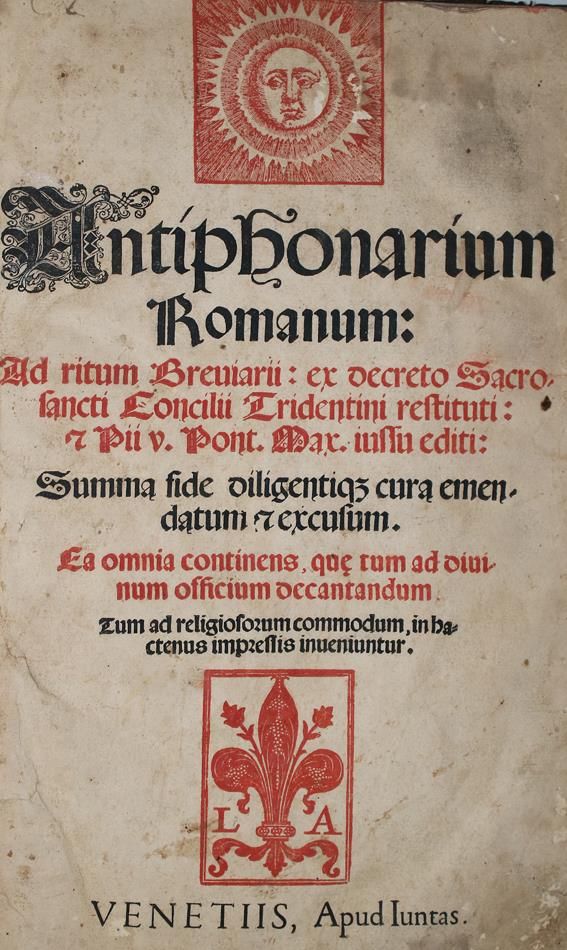 Antiphonarium
Romanum:
Ad ritum Breuiarii: ex decreto Sacro-
sancti Concilii Tridentini restituti:
⁊ Pii v. Pont. Max. iussu editi:
Summa fide diligentiqꝫ cura emen-
datum ⁊ excusum.
Ea omnia continens, quę tum ad diui-
num officium decantandum.
Tum ad religiosorum commodum, in ha-
ctenus impressis inueniuntur.
L A
VENETIIS, Apud Iuntas.